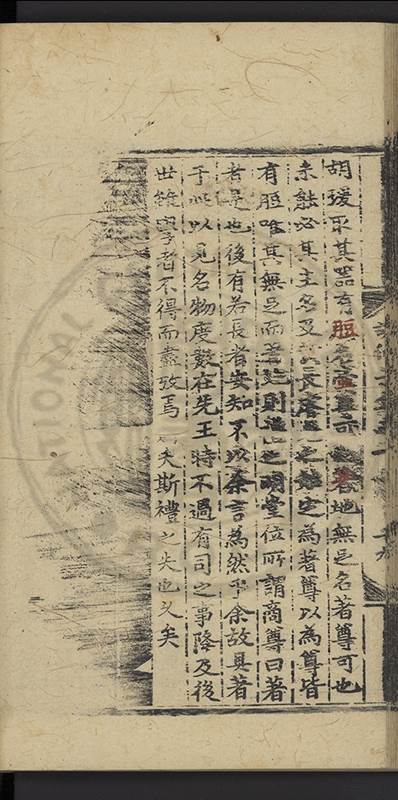 胡瑗取其器有脰名壺尊可著地無足名著尊可也
未能必其主名及長定為著尊以為尊皆
有脰唯其無足而著地則明堂位所謂商尊曰著
者是也後有若長者安知不以余言為然乎余故具著
于此以見名物度數在先王時不過有司之事降及後
世雖學者不得而盡攷焉夫斯禮之失也久矣